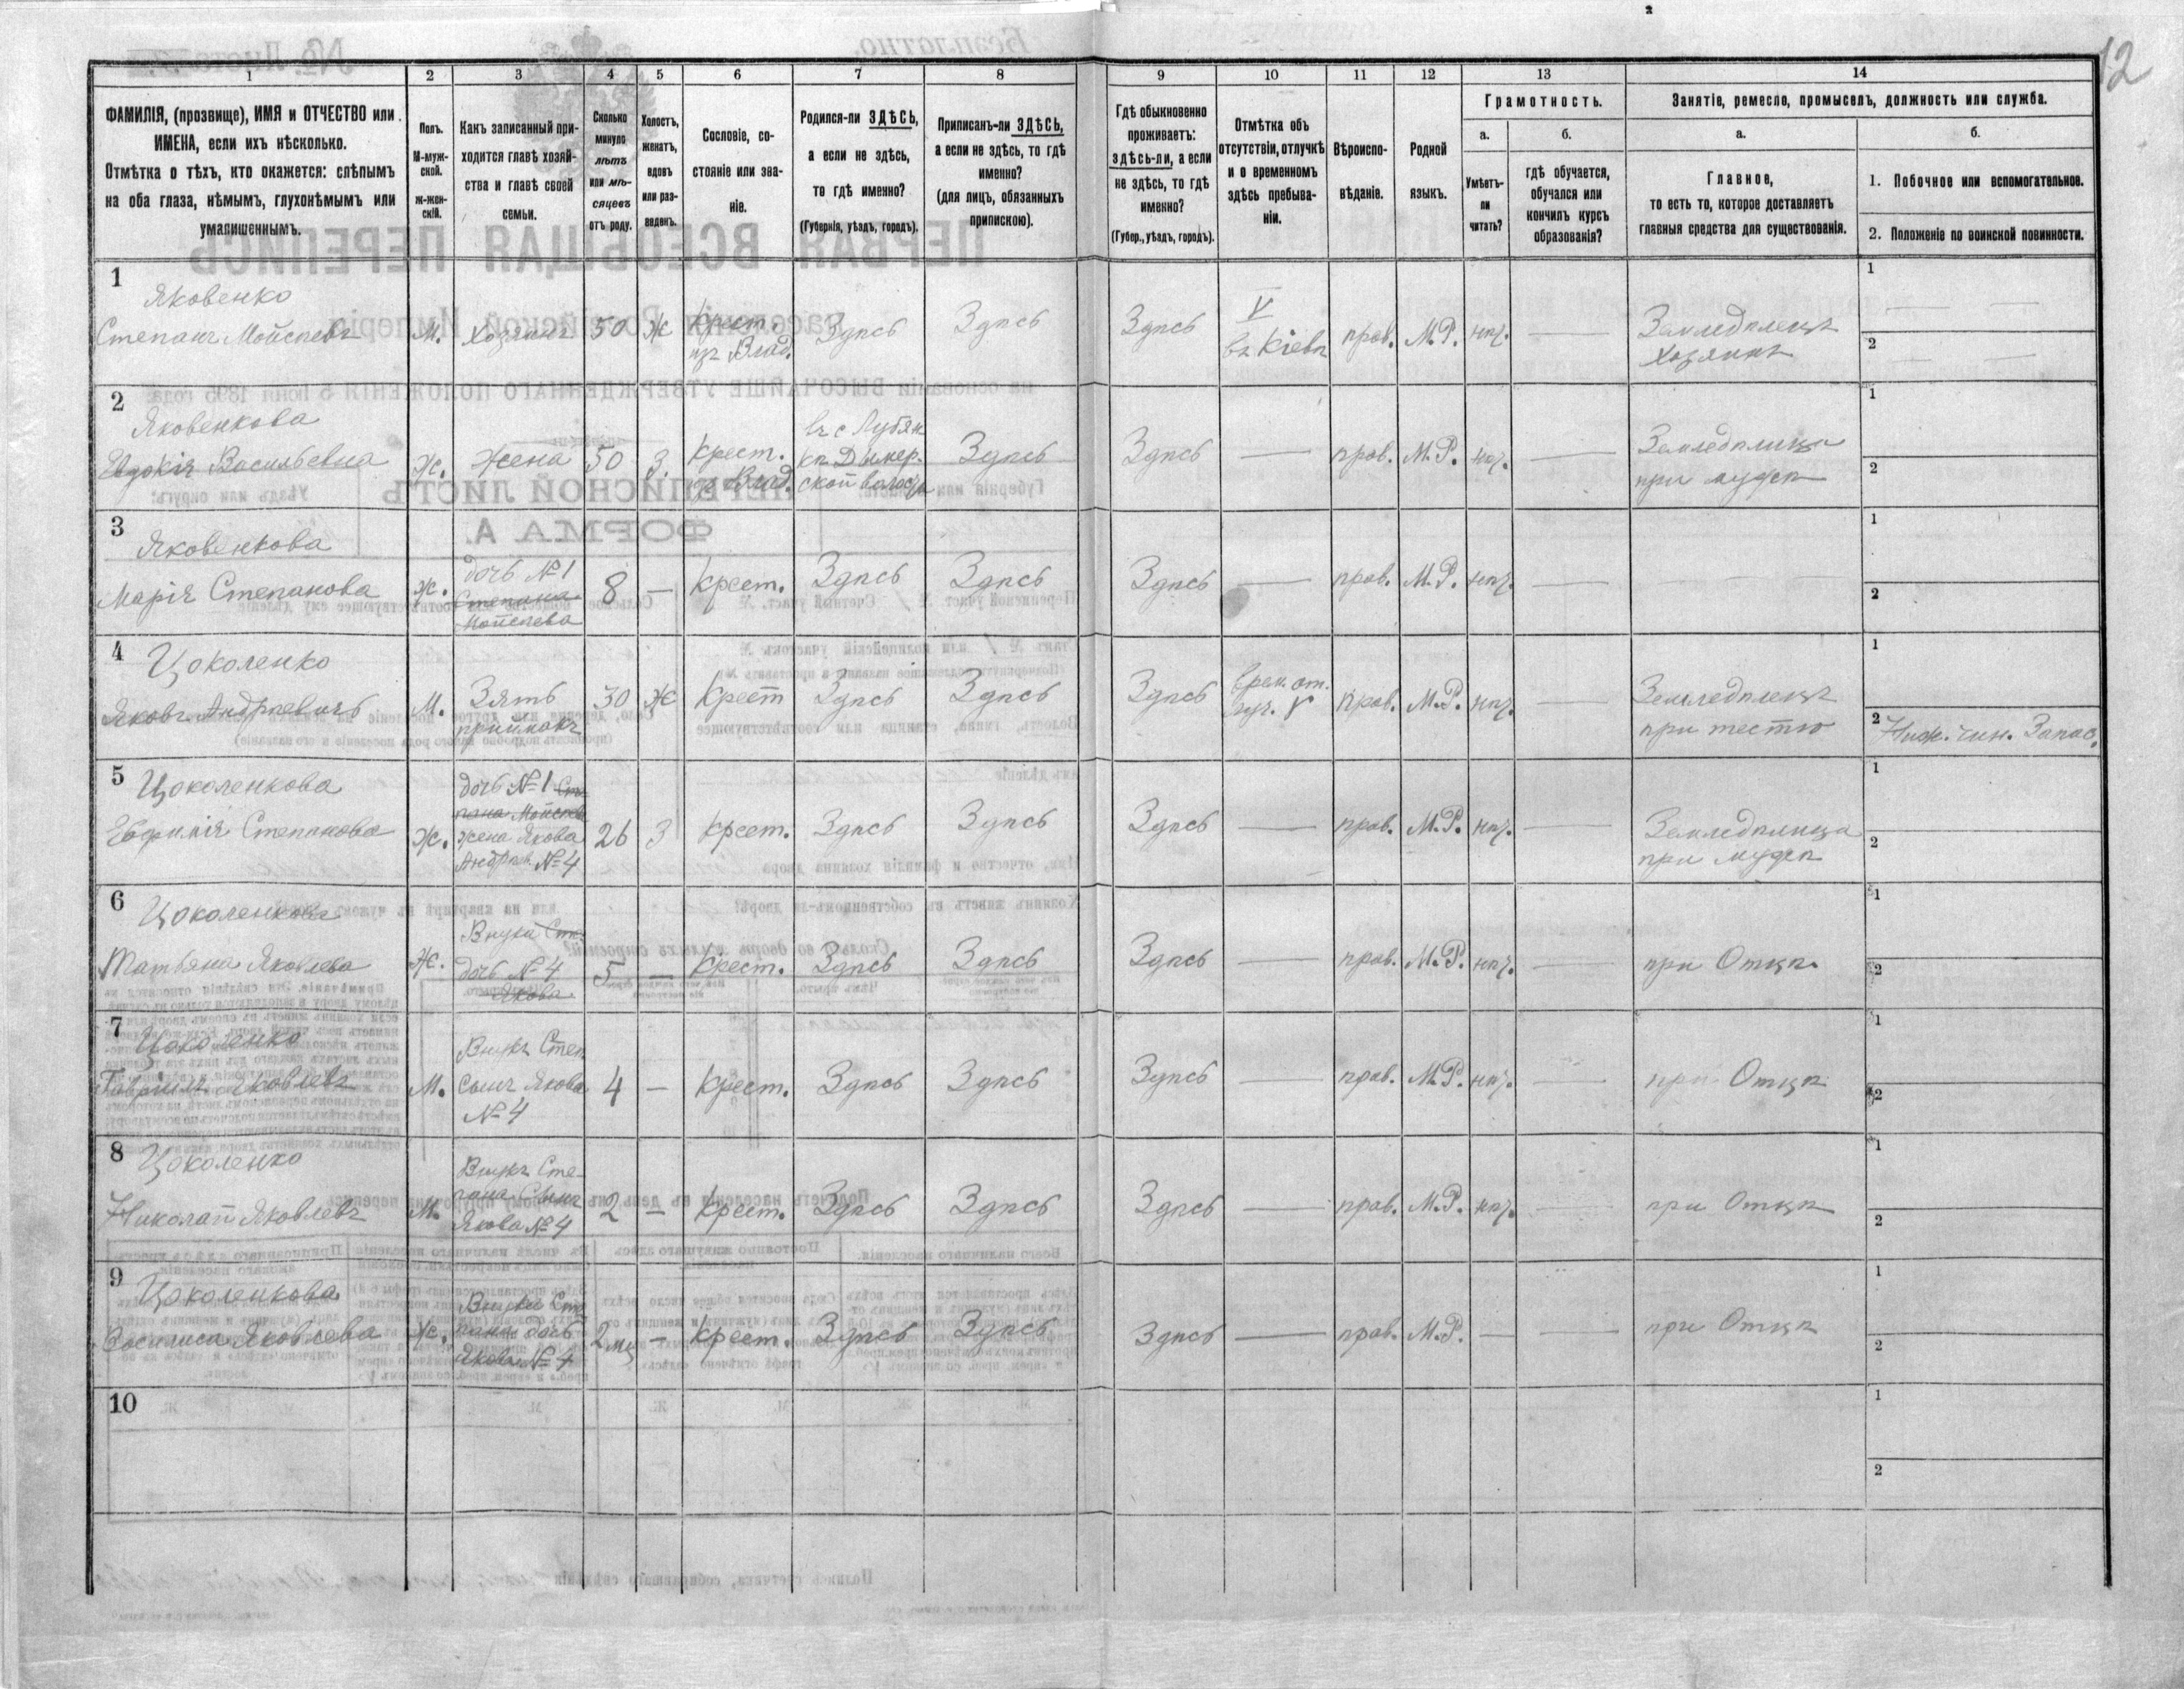 12
1 2 3 4 5 6 7 8 9 10 11 12 13 14
ФАМИЛІЯ, (прозвище), ИМЯ и ОТЧЕСТВО или
ИМЕНА, если ихъ нѣсколько.
Отмѣтка о тѣхъ, кто окажется: слѣпымъ
на оба глаза, нѣмымъ, глухонѣмымъ или
умалишеннымъ.
Полъ.
М-муж-
ской.
ж-жен-
скій.
Какъ записанный при-
ходится главѣ хозяй-
ства и главѣ своей
семьи.
Сколько
минуло
лѣтъ
или мѣ-
сяцевъ
отъ роду.
Холостъ,
женатъ,
вдовъ
или раз-
веденъ.
Сословіе, со-
стояніе или зва-
ніе.
Родился-ли ЗДѢСЬ,
а если не здѣсь,
то гдѣ именно?
(Губернія, уѣздъ, городъ).
Приписанъ-ли ЗДѢСЬ,
а если не здѣсь, то гдѣ
именно?
(для лицъ, обязанныхъ
припискою).
Гдѣ обыкновенно
проживаетъ:
здѣсь-ли, а если
не здѣсь, то гдѣ
именно?
(Губер., уѣздъ, городъ).
Отмѣтка объ
отсутствіи, отлучкѣ
и о временномъ
здѣсь пребыва-
ніи.
Вѣроиспо-
вѣданіе.
Родной
языкъ.
Грамотность.
а.
Умѣетъ-
ли
читать?
б.
гдѣ обучается,
обучался или
кончилъ курсъ
образованія?
Занятіе, ремесло, промыселъ, должность или служба.
а.
Главное,
то есть то, которое доставляетъ
главныя средства для существованія.
б.
1. Побочное или вспомогательное.
2. Положеніе по воинской повинности.
1
Яковенко
Степанъ Мойсѣевъ
М.
Хозяинъ
50
Ж
Крест.
из Влад.
Здѣсь
Здѣсь
Здѣсь
V
въ Кіевѣ
прав.
М.Р.
нѣт.
—
Земледѣлецъ
Хозяинъ
1 — —
2 — —
2
Яковенкова
Евдокія Васильевна
Ж.
Жена
50
З.
Крест.
из Влад.
въ с Лубян
кѣ Дымер.
ской волости
Здѣсь
Здѣсь
—
прав.
М.Р.
нѣт.
—
Земледѣлица
при мужѣ
1
2
3
Яковенкова
Марія Степанова
Ж.
дочь №1
Степана
Мойсѣева
8
—
Крест.
Здѣсь
Здѣсь
Здѣсь
—
прав.
М.Р.
нѣт.
—
— — —
1
2
4
Цоколенко
Яковъ Андрѣевичъ
М.
Зять
приймакъ
30
Ж
Крест
Здѣсь
Здѣсь
Здѣсь
врем. от.
луч. V
прав.
М.Р.
нѣт.
—
Земледѣлецъ
при тестю
1
2 Ниж. чин. Запас.
5
Цоколенкова
Евфимія Степанова
Ж.
дочь №1 Сте
пана Мойсѣев
жена Якова
Андрѣев. №4
26
З
Крест.
Здѣсь
Здѣсь
Здѣсь
—
прав.
М.Р.
нѣт.
—
Земледѣлица
при мужѣ
1
2
6
Цоколенкова
Татьяна Яковлева
Ж.
Внука Сте.
дочь №4
Якова
5
—
Крест.
Здѣсь
Здѣсь
Здѣсь
—
прав.
М.Р.
нѣт.
—
при Отцѣ
1
2
7
Цоколенко
Гавріилъ Яковлевъ
М.
Внукъ Степ
Сынъ Якова
№4
4
—
Крест.
Здѣсь
Здѣсь
Здѣсь
—
прав.
М.Р.
нѣт.
—
при Отцѣ
1
2
8
Цоколенко
Николай Яковлевъ
М.
Внукъ Сте-
пана Сынъ
Якова №4
2
—
Крест.
Здѣсь
Здѣсь
Здѣсь
—
прав.
М.Р.
нѣт.
—
при Отцѣ
1
2
9
Цоколенкова
Василиса Яковлева
Ж.
Внука Сте
пана дочь
Якова №4
2 мц
—
Крест.
Здѣсь
Здѣсь
Здѣсь
—
прав.
М.Р.
—
—
при Отцѣ
1
2
10
1
2